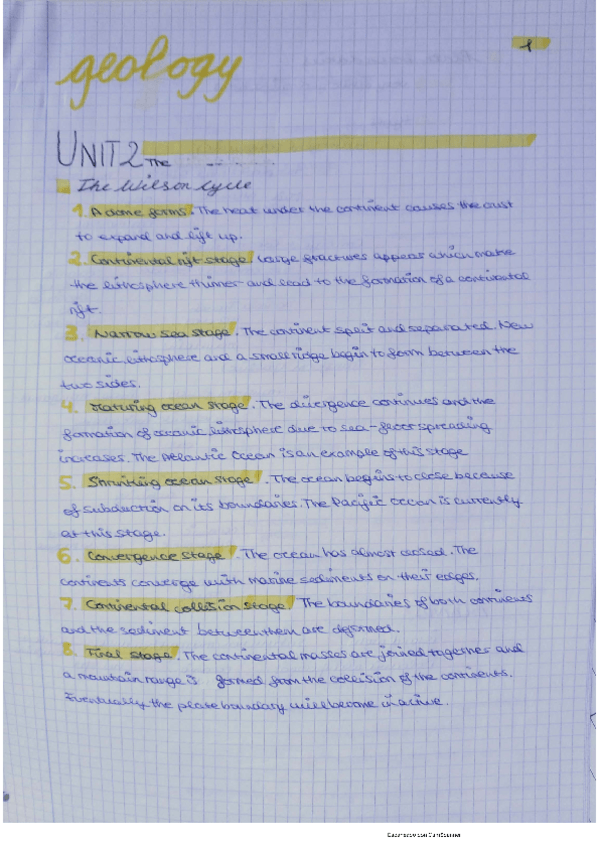 geology
1
UNIT 2 The
The Wilson Cycle
1. A dome forms. The heat under the continent causes the crust
to expand and lift up.
2. Continental rift stage. Large fractures appear which make
the lithosphere thinner and lead to the formation of a continental
rift.
3. Narrow sea stage. The continent split and separated. New
oceanic lithosphere and a small ridge begin to form between the
two sides.
4. Maturing ocean stage. The divergence continues and the
formation of oceanic lithosphere due to sea-floor spreading
increases. The Atlantic Ocean is an example of this stage
5. Shrinking ocean stage. The ocean begins to close because
of subduction on its boundaries. The Pacific Ocean is currently
at this stage.
6. Convergence stage. The ocean has almost closed. The
continents converge with marine sediments on their edges.
7. Continental collision stage. The boundaries of both continents
and the sediment between them are deformed.
8. Final stage. The continental masses are joined together and
a mountain range is formed from the collision of the continents.
Eventually the plate boundary will become inactive.
Escaneado con CamScanner